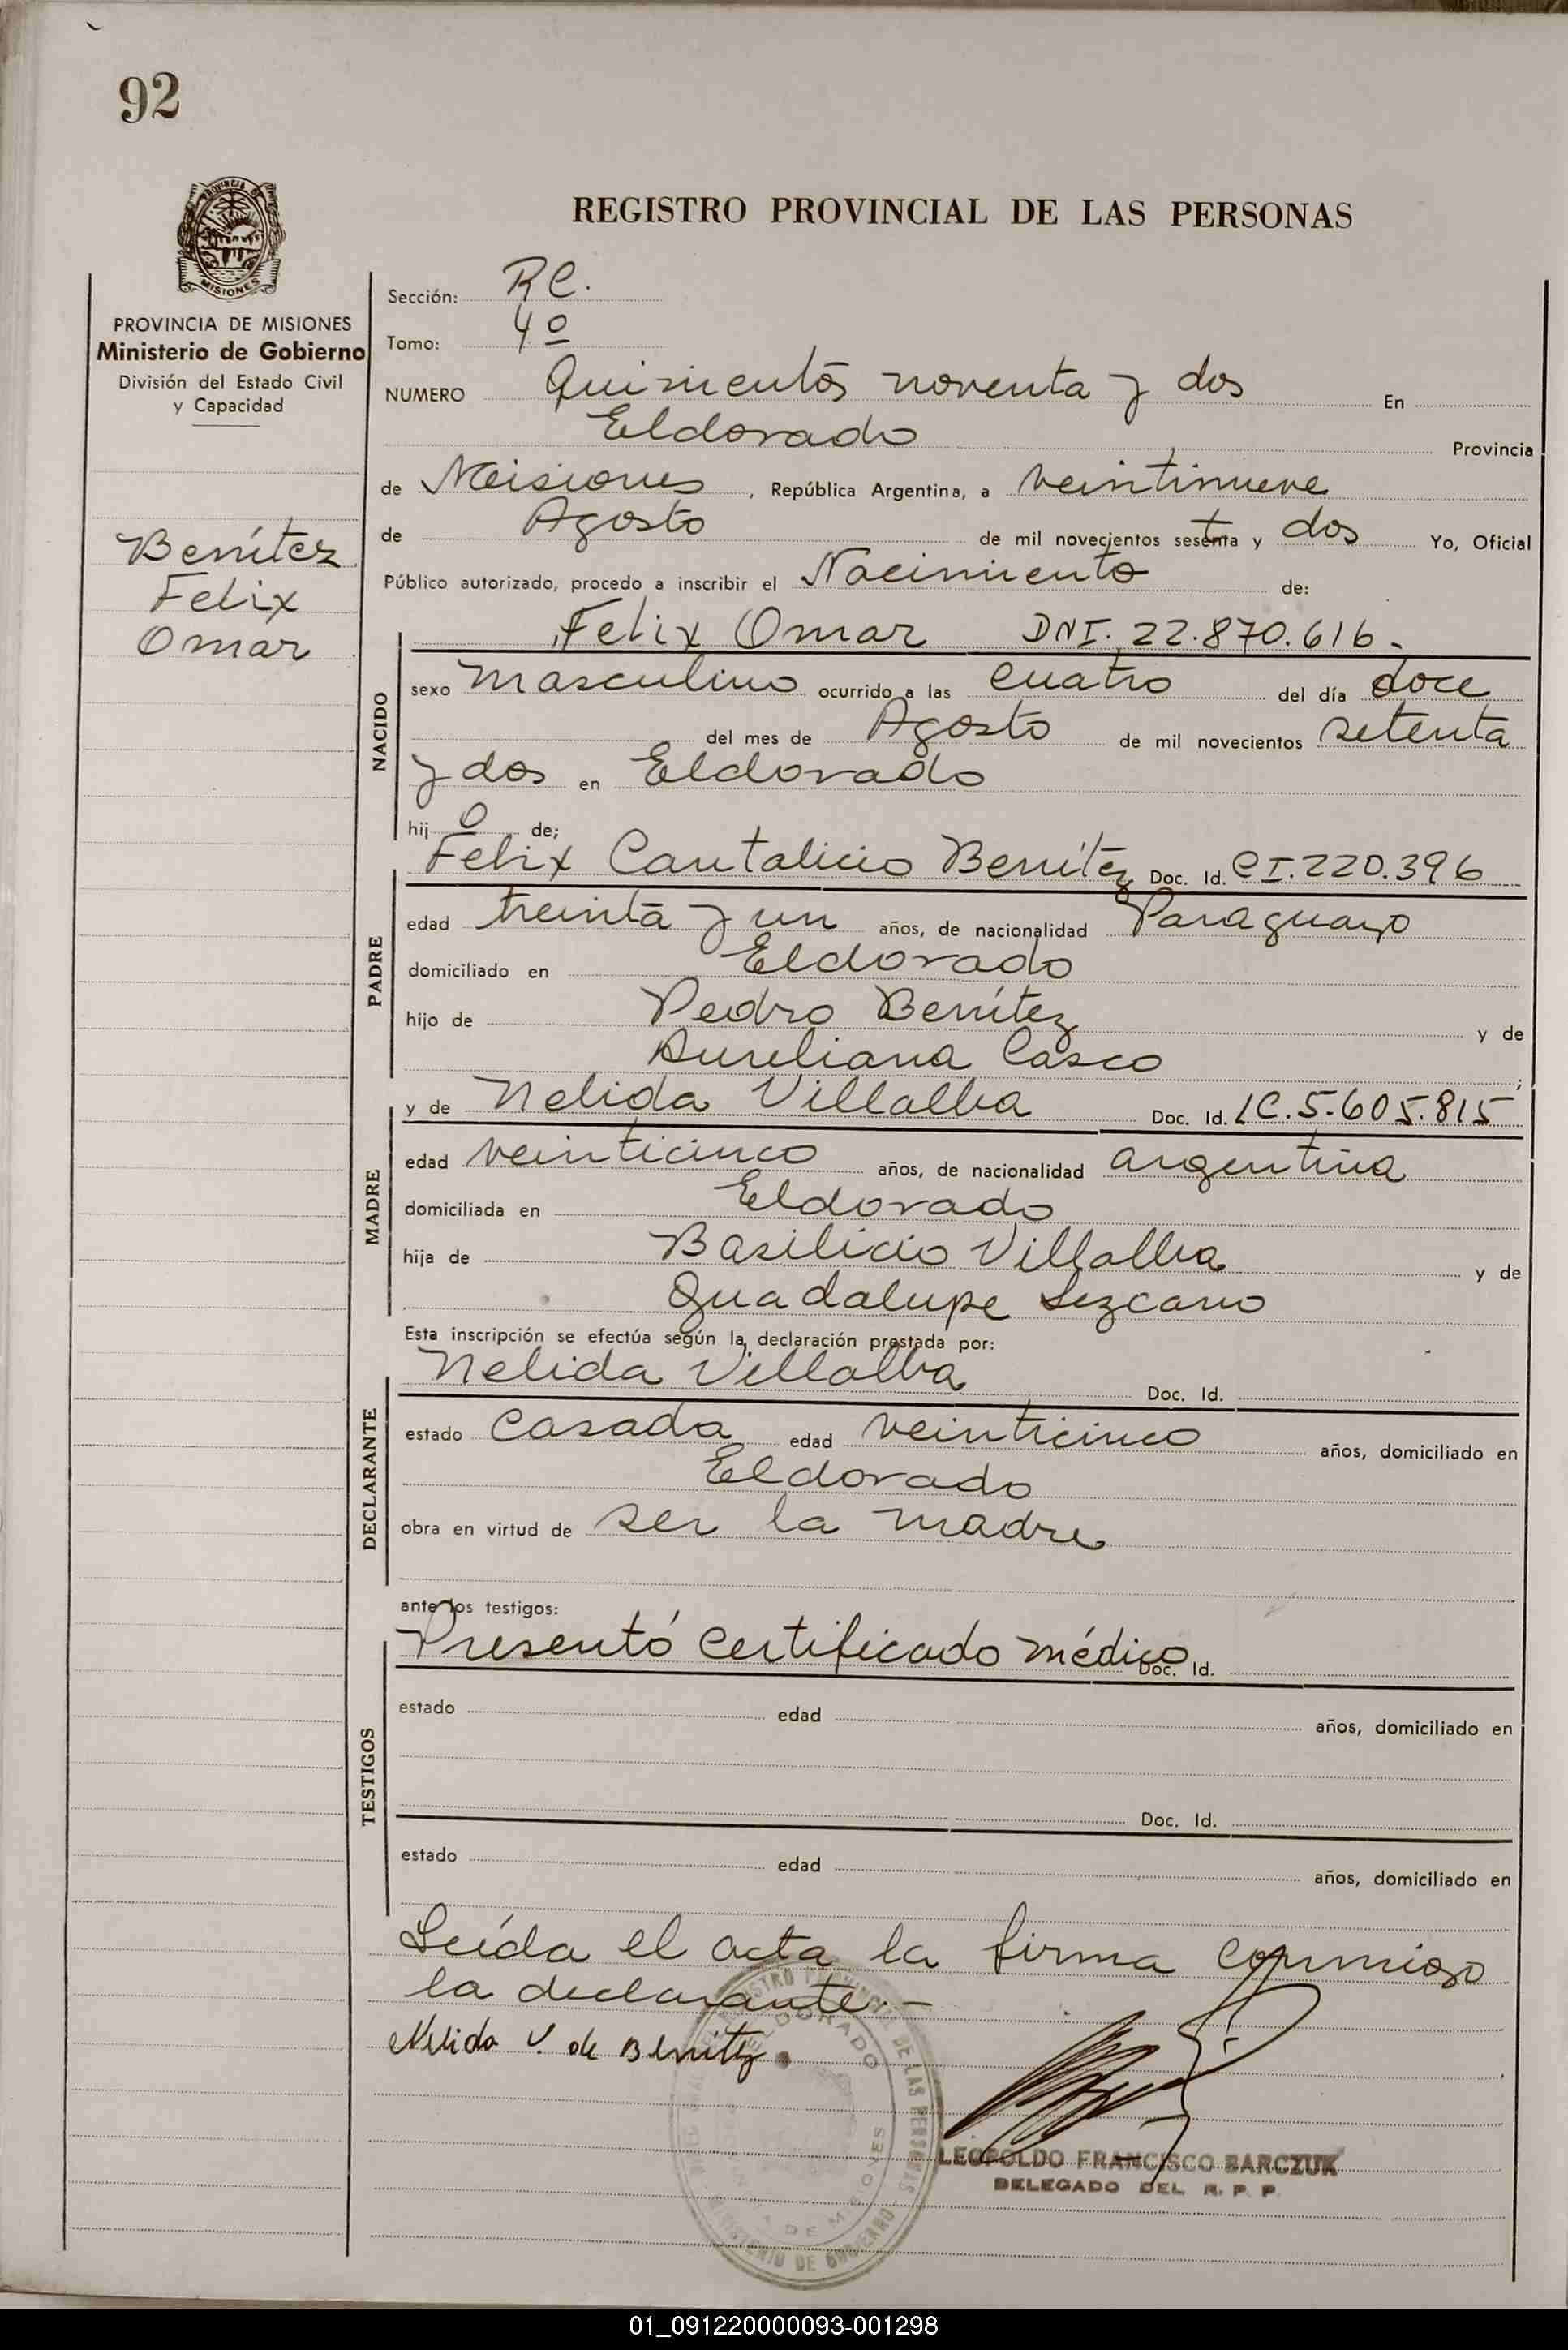 92
REGISTRO PROVINCIAL DE LAS PERSONAS
PROVINCIA DE MISIONES
Ministerio de Gobierno
División del Estado Civil
y Capacidad
Benítez
Felix
Omar
Sección: RC.
Tomo: 4º
NUMERO Quinientos noventa y dos En
Eldorado Provincia
de Misiones, República Argentina, a veintinueve
de Agosto de mil novecientos setenta y dos Yo, Oficial
Público autorizado, procedo a inscribir el Nacimiento de:
NACIDO
Felix Omar DNI. 22.870.616.-
sexo masculino ocurrido a las cuatro del día doce
del mes de Agosto de mil novecientos setenta
y dos en Eldorado
hijo de;
PADRE
Felix Cantalicio Benítez Doc. Id. CI.220.396
edad treinta y un años, de nacionalidad Paraguayo
domiciliado en Eldorado
hijo de Pedro Benítez y de
Aureliana Casco;
MADRE
y de Nelida Villalba Doc. Id. LC.5.605.815
edad veinticinco años, de nacionalidad argentina
domiciliada en Eldorado
hija de Basilicio Villalba y de
Guadalupe Lezcano
Esta inscripción se efectúa según la declaración prestada por:
DECLARANTE
Nelida Villalba Doc. Id.
estado casada edad veinticinco años, domiciliado en
Eldorado
obra en virtud de ser la madre
ante los testigos:
TESTIGOS
Presentó certificado médico Doc. Id.
estado edad años, domiciliado en
Doc. Id.
estado edad años, domiciliado en
Leída el acta la firma conmigo
la declarante.-
Nelida V. de Benitez
LEOPOLDO FRANCISCO BARCZUK
DELEGADO DEL R. P. P.
01_091220000093-001298